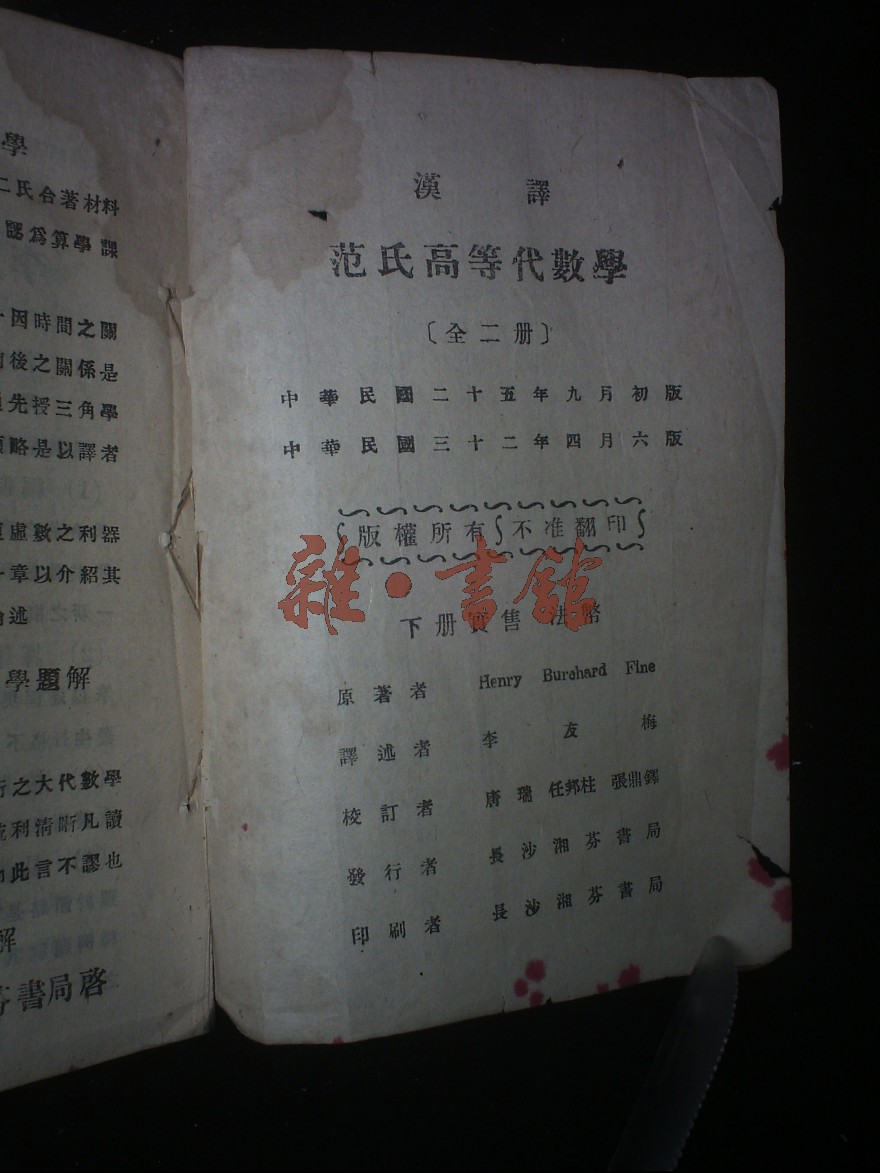 學
二氏合著材料
認爲算學課
因時間之關
前後之關係是
先授三角學
略是以譯者
虛數之利器
一章以介紹其
述
學題解
之大代數學
利清晰凡讀
此言不謬也
解
芬書局啓
漢譯
范氏高等代數學
〔全二册〕
中華民國二十五年九月初版
中華民國三十二年四月六版
版權所有 不准翻印
雜·書館
下册實售法幣
原著者 Henry Burchard Fine
譯述者 李友梅
校訂者 唐瑞 任邦柱 張鼎鐸
發行者 長沙湘芬書局
印刷者 長沙湘芬書局